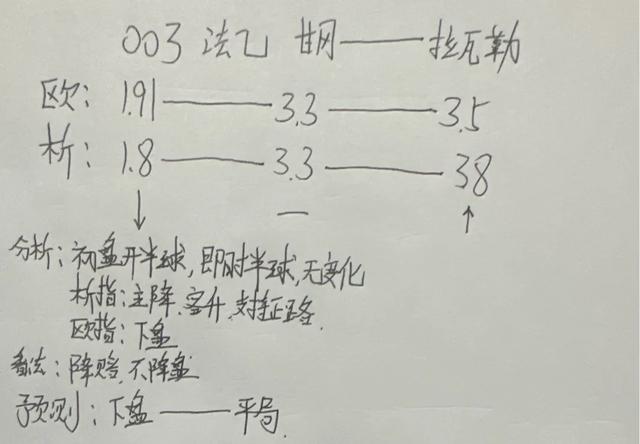 003 法乙 甘冈——拉瓦勒
欧: 1.91——3.3——3.5
析: 1.8——3.3——38
↓ — ↑
分析: 初盘开半球,即时半球,无变化
析指: 主降.客升.支持正路.
欧指: 下盘
看法: 降赔.不降盘
予测: 下盘——平局.